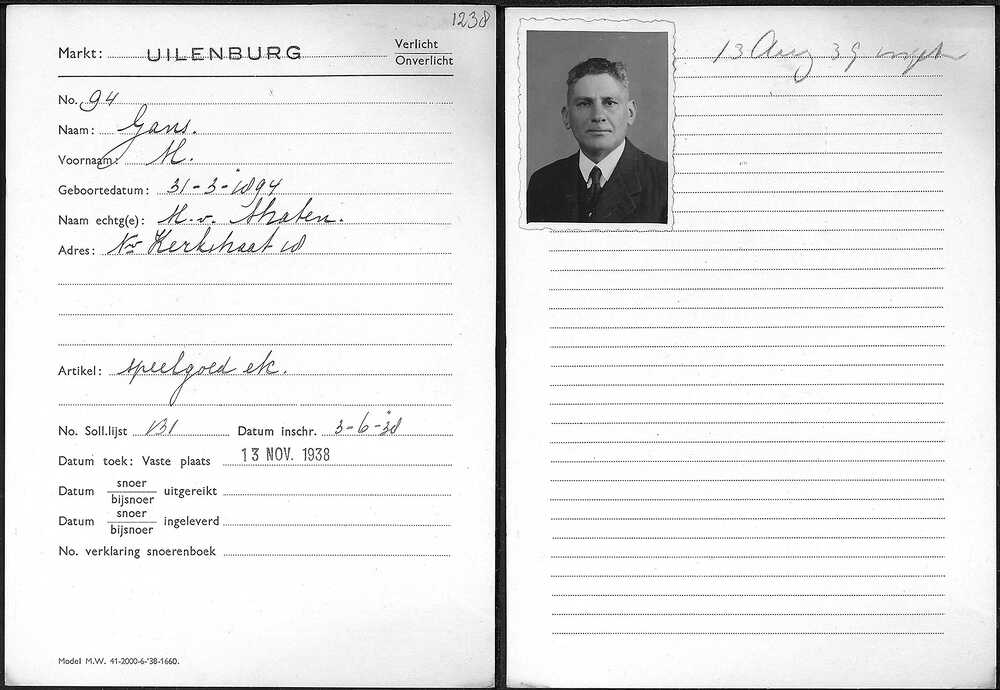 1238
Markt: UILENBURG
Verlicht
Onverlicht
No. 94
Naam: Gans.
Voornaam: M.
Geboortedatum: 31-3-1894
Naam echtg(e): M. v. Thaten.
Adres: Nw Kerkstraat 18
Artikel: speelgoed etc.
No. Soll.lijst 131 Datum inschr. 3-6-38
Datum toek: Vaste plaats 13 NOV. 1938
Datum snoer/bijsnoer uitgereikt
Datum snoer/bijsnoer ingeleverd
No. verklaring snoerenboek
Model M.W. 41-2000-6-'38-1660.
13 Aug 39